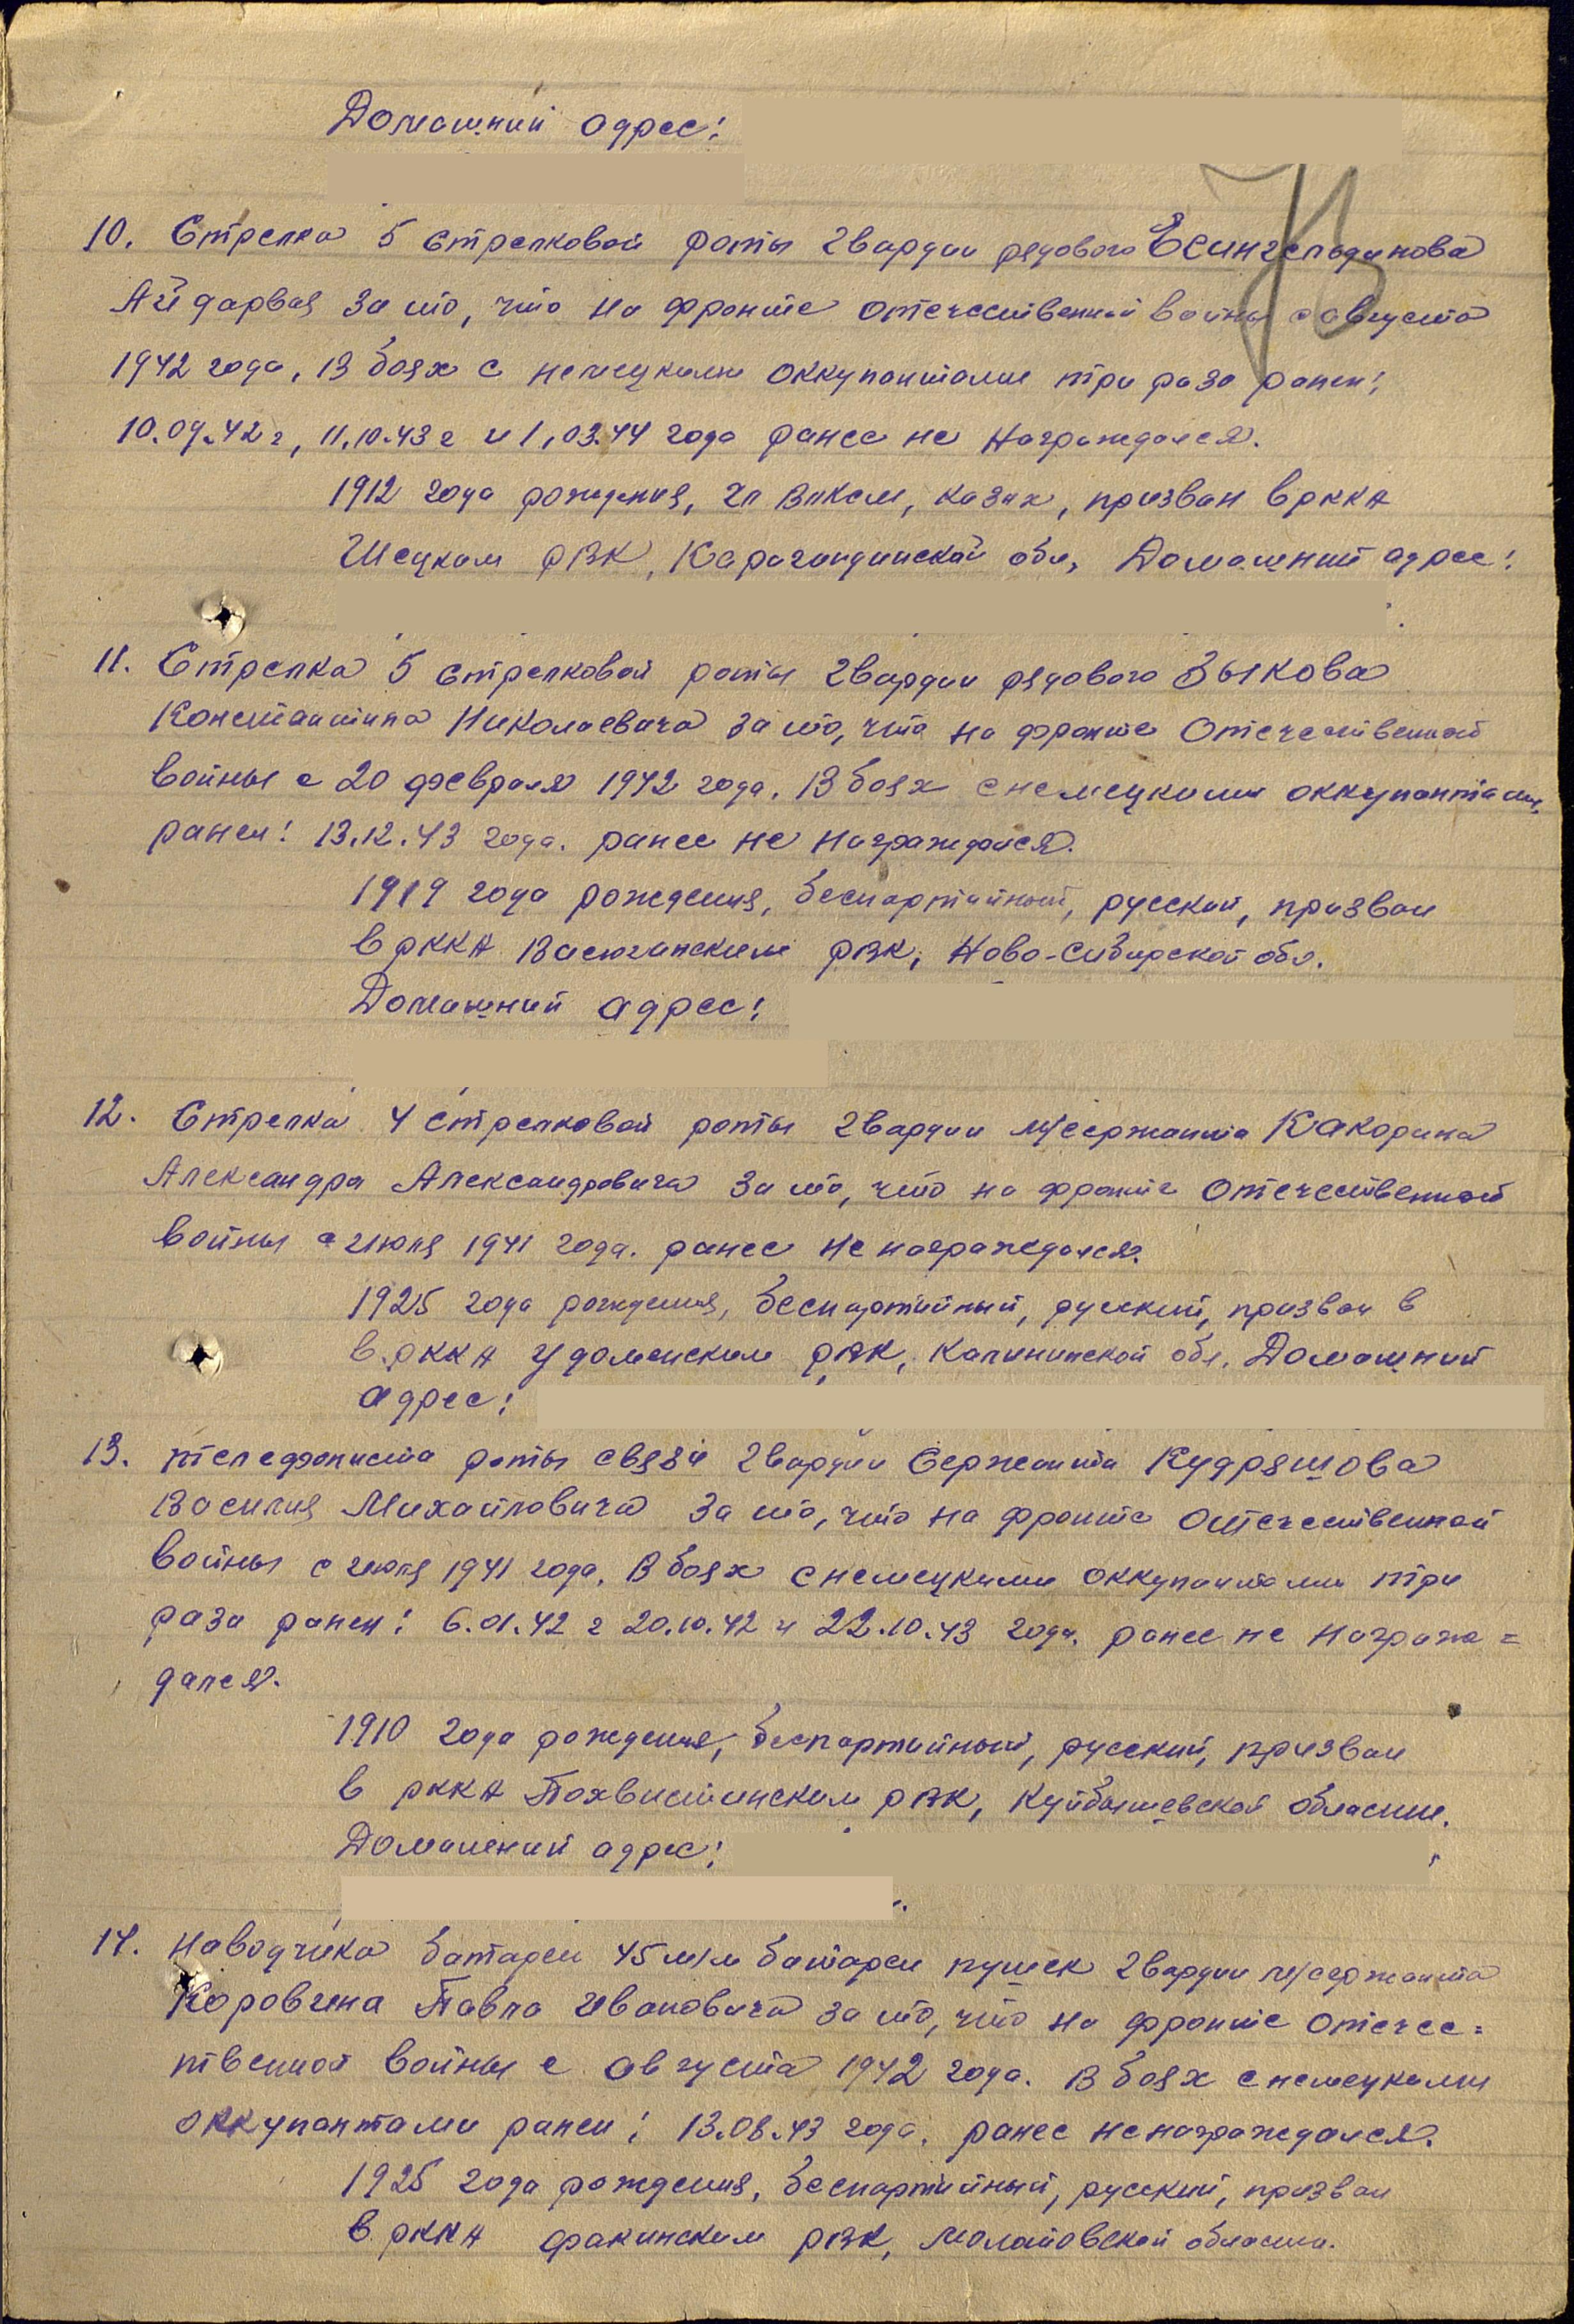 Домашний адрес:
73
10. Стрелка 5 стрелковой роты гвардии рядового Есингельдинова
Айдарвая за то, что на фронте отечественной войны с августа
1942 года, В боях с немецкими оккупантами три раза ранен:
10.09.42 г, 11.10.43 г и 1.03.44 года ранее не награждался.
1912 года рождения, чл ВЛКСМ, казах, призван в РККА
Шецким РВК, Карагандинской обл, Домашний адрес:
11. Стрелка 5 стрелковой роты гвардии рядового Зыкова
Константина Николаевича за то, что на фронте Отечественной
войны с 20 февраля 1942 года. В боях с немецкими оккупантами
ранен: 13.12.43 года. ранее не награждался.
1919 года рождения, беспартийный, русский, призван
в РККА Васюганским РВК, Ново-Сибирской обл.
Домашний адрес:
12. Стрелка 4 стрелковой роты гвардии м/сержанта Какорина
Александра Александровича за то, что на фронте Отечественной
войны с июля 1941 года. ранее не награждался.
1925 года рождения, беспартийный, русский, призван в
в РККА Удоменским РВК, Калининской обл. Домашний
адрес:
13. телефониста роты связи гвардии Сержанта Кудряшова
Василия Михайловича за то, что на фронте Отечественной
войны с июля 1941 года. В боях с немецкими оккупантами три
раза ранен: 6.01.42 г 20.10.42 и 22.10.43 года. ранее не награж=
дался.
1910 года рождения, беспартийный, русский, призван
в РККА Похвистинским РВК, Куйбышевской области.
Домашний адрес:
14. Наводчика батареи 45 м/м батареи пушек гвардии м/сержанта
Коровина Павла Ивановича за то, что на фронте Отечес=
твенной войны с августа 1942 года. В боях с немецкими
оккупантами ранен: 13.08.43 года. ранее не награждался.
1925 года рождения, беспартийный, русский, призван
в РККА Фокинским РВК, Молотовской области.